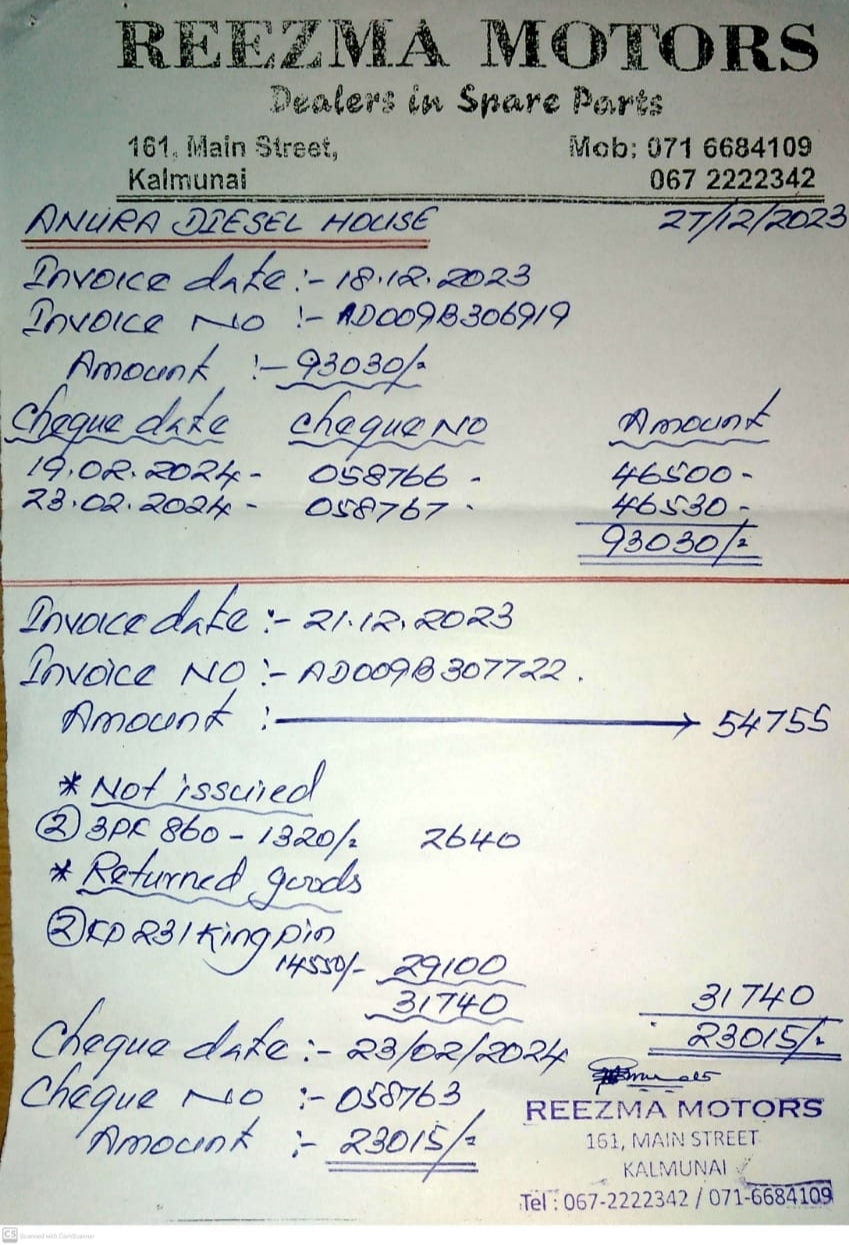 REEZMA MOTORS
Dealers in Spare Parts
161, Main Street, Mob: 071 6684109
Kalmunai 067 2222342
ANURA DIESEL HOUSE 27/12/2023
Invoice date :- 18.12.2023
Invoice NO :- AD009B306919
Amount :- 93030/=
Cheque date Cheque NO Amount
19.02.2024 - 058766 - 46500 -
23.02.2024 - 058767 - 46530 -
93030/=
Invoice date :- 21.12.2023
Invoice NO :- AD009B307722.
Amount :→ 54755
* Not issuied
② 3PK 860 - 1320/= 2640
* Returned goods
② KP 231 King pin
14550/- 29100
31740 31740
23015/=
Cheque date :- 23/02/2024
Cheque NO :- 058763
Amount :- 23015/=
REEZMA MOTORS
161, MAIN STREET
KALMUNAI
Tel : 067-2222342 / 071-6684109
CS Scanned with CamScanner